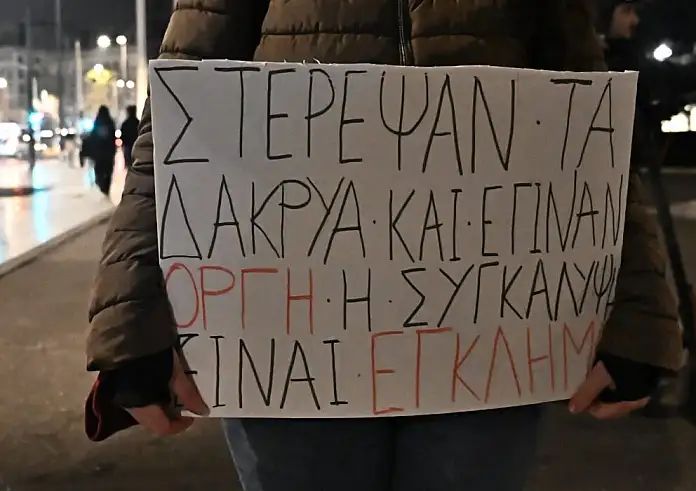 ΣΤΕΡΕΨΑΝ·ΤΑ
ΔΑΚΡΥΑ·ΚΑΙ·ΕΓΙΝΑΝ
ΟΡΓΗ·Η·ΣΥΓΚΑΛΥΨΗ
ΕΙΝΑΙ·ΕΓΚΛΗΜ